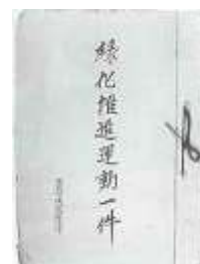 緑化推進運動一件